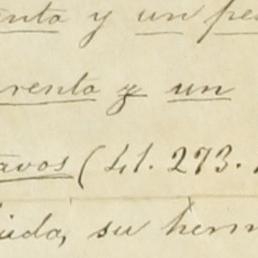 enta y un pes
renta y un
avos (41.273.
uida, su herm